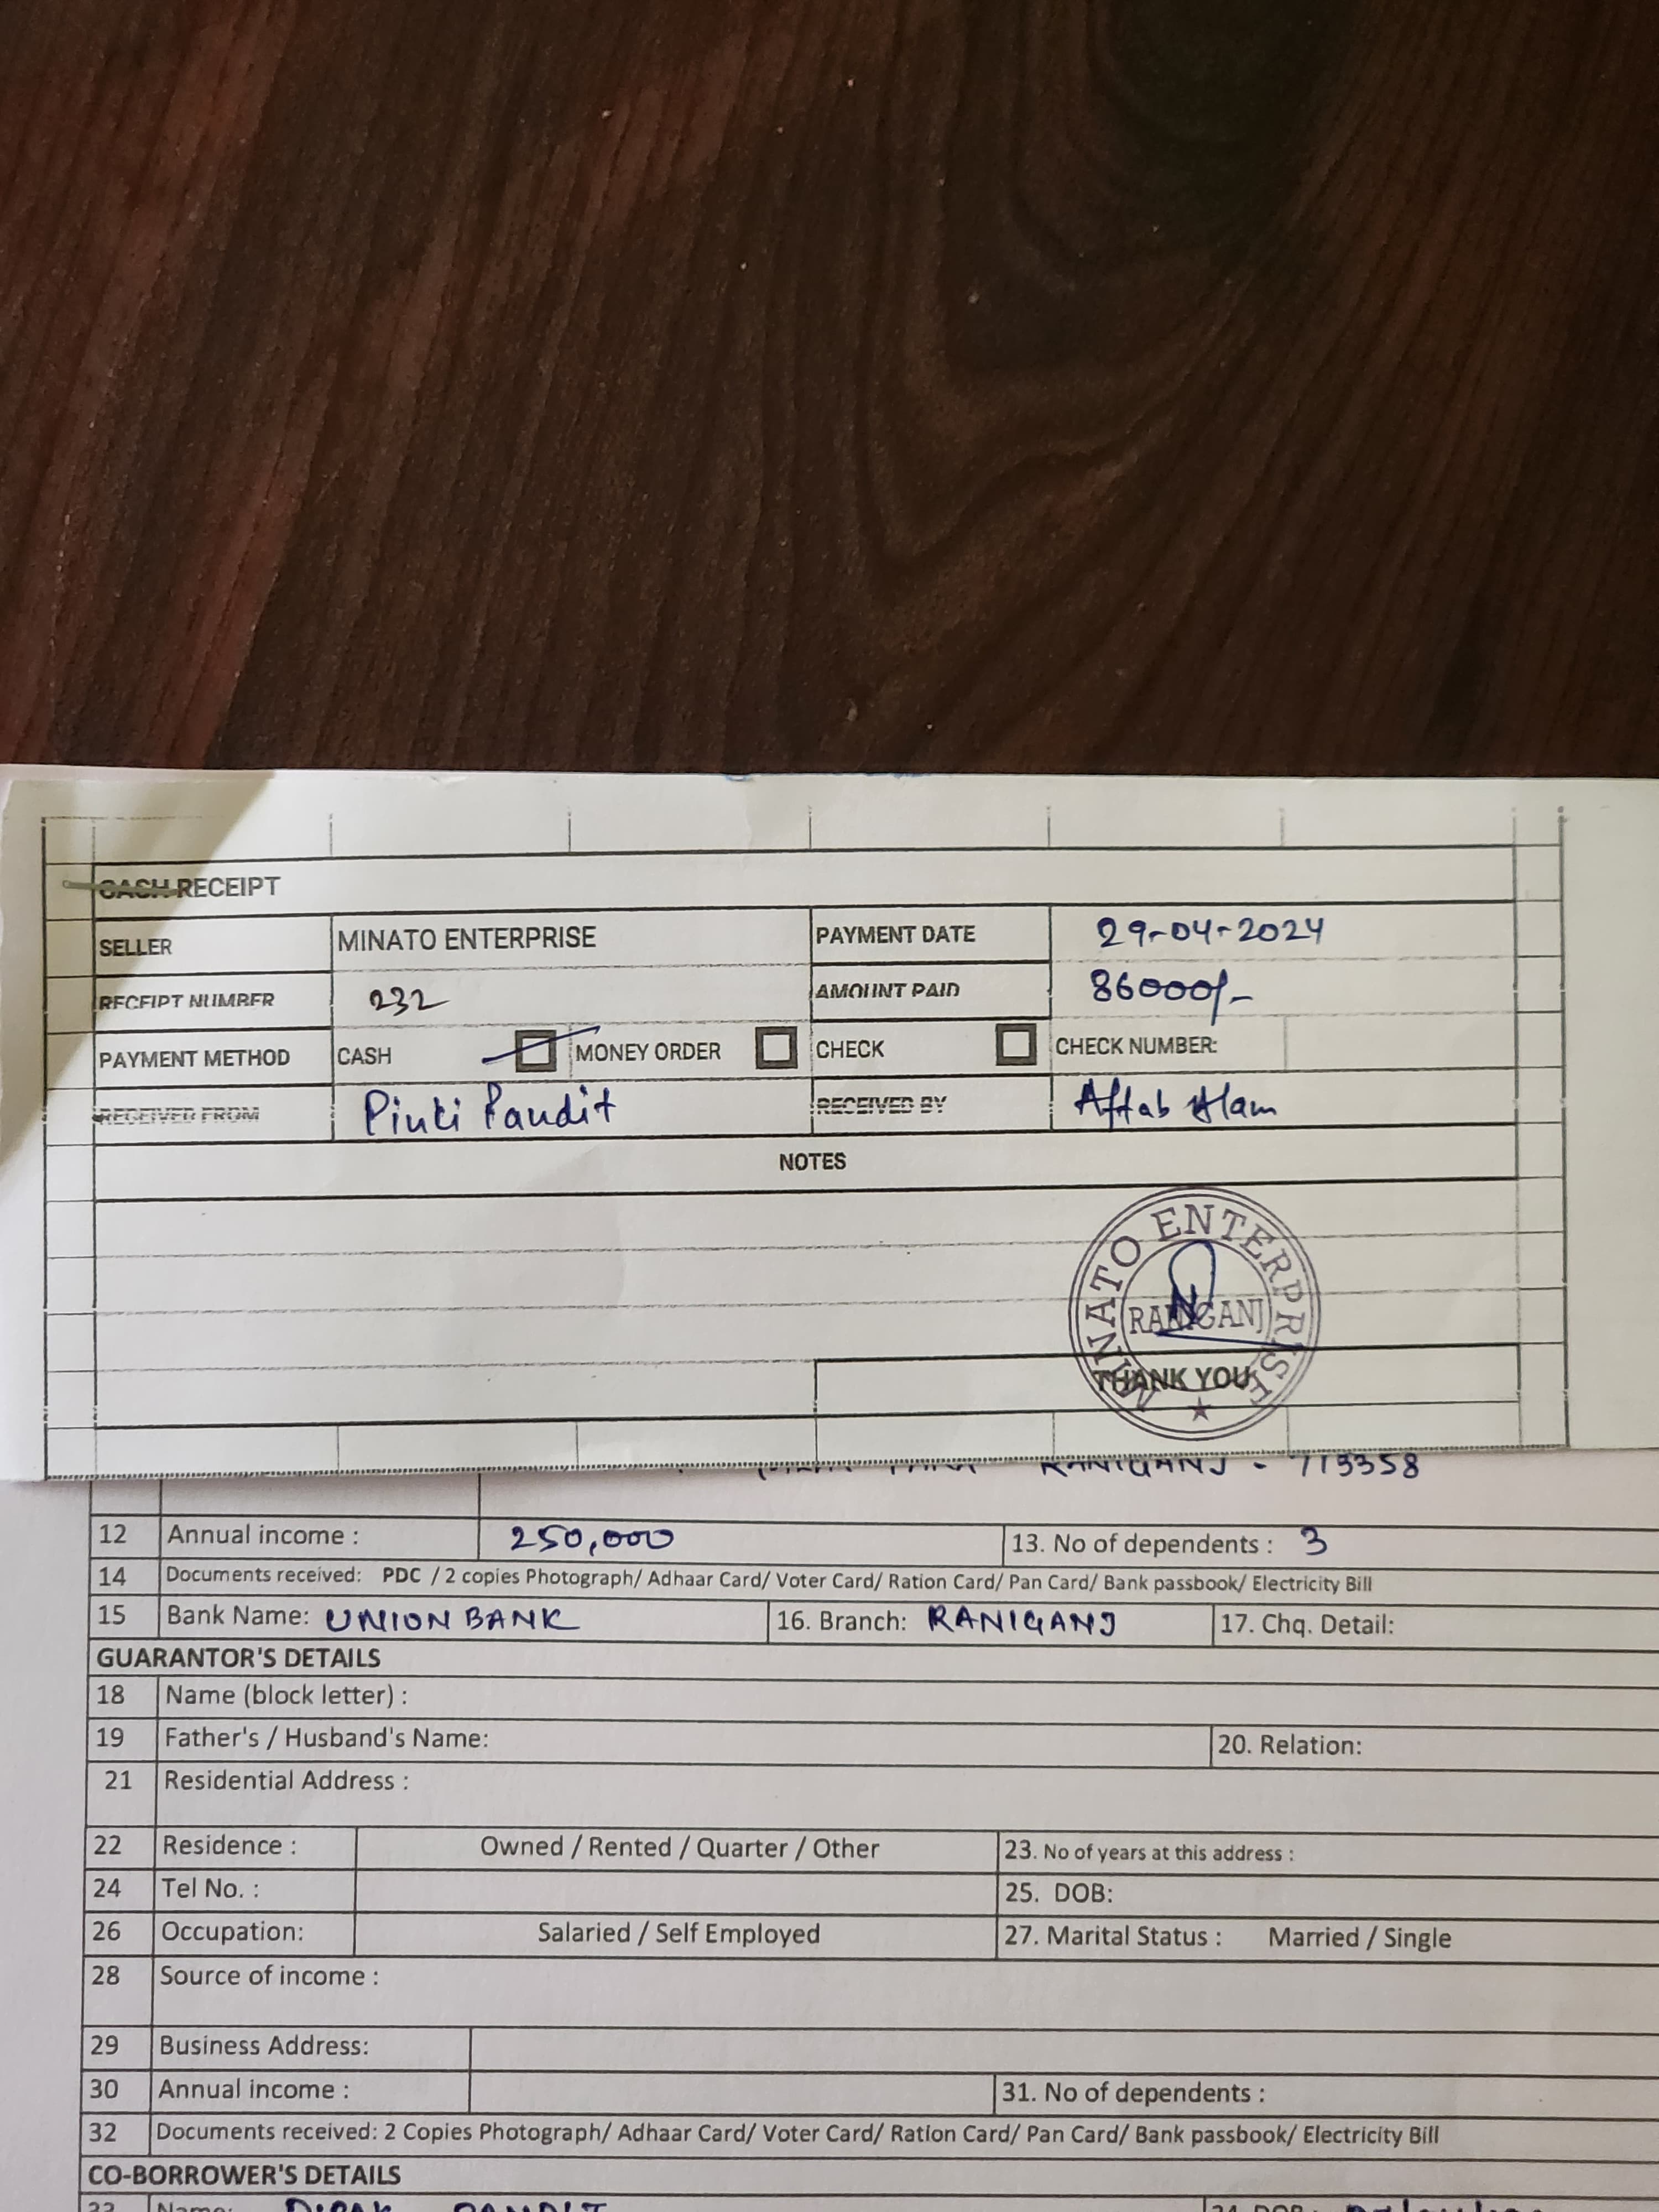 CASH RECEIPT
SELLER MINATO ENTERPRISE PAYMENT DATE 29-04-2024
RECEIPT NUMBER 232 AMOUNT PAID 86000/-
PAYMENT METHOD CASH MONEY ORDER CHECK CHECK NUMBER:
RECEIVED FROM Pinki Pandit RECEIVED BY Aftab Alam
NOTES
MINATO ENTERPRISE
RANIGANJ
THANK YOU
RANIGANJ - 713358
12 Annual income : 250,000 13. No of dependents : 3
14 Documents received: PDC / 2 copies Photograph/ Adhaar Card/ Voter Card/ Ration Card/ Pan Card/ Bank passbook/ Electricity Bill
15 Bank Name: UNION BANK 16. Branch: RANIGANJ 17. Chq. Detail:
GUARANTOR'S DETAILS
18 Name (block letter) :
19 Father's / Husband's Name: 20. Relation:
21 Residential Address :
22 Residence : Owned / Rented / Quarter / Other 23. No of years at this address :
24 Tel No. : 25. DOB:
26 Occupation: Salaried / Self Employed 27. Marital Status : Married / Single
28 Source of income :
29 Business Address:
30 Annual income : 31. No of dependents :
32 Documents received: 2 Copies Photograph/ Adhaar Card/ Voter Card/ Ration Card/ Pan Card/ Bank passbook/ Electricity Bill
CO-BORROWER'S DETAILS
33 Name: DIPAK PANDIT 34. DOB: